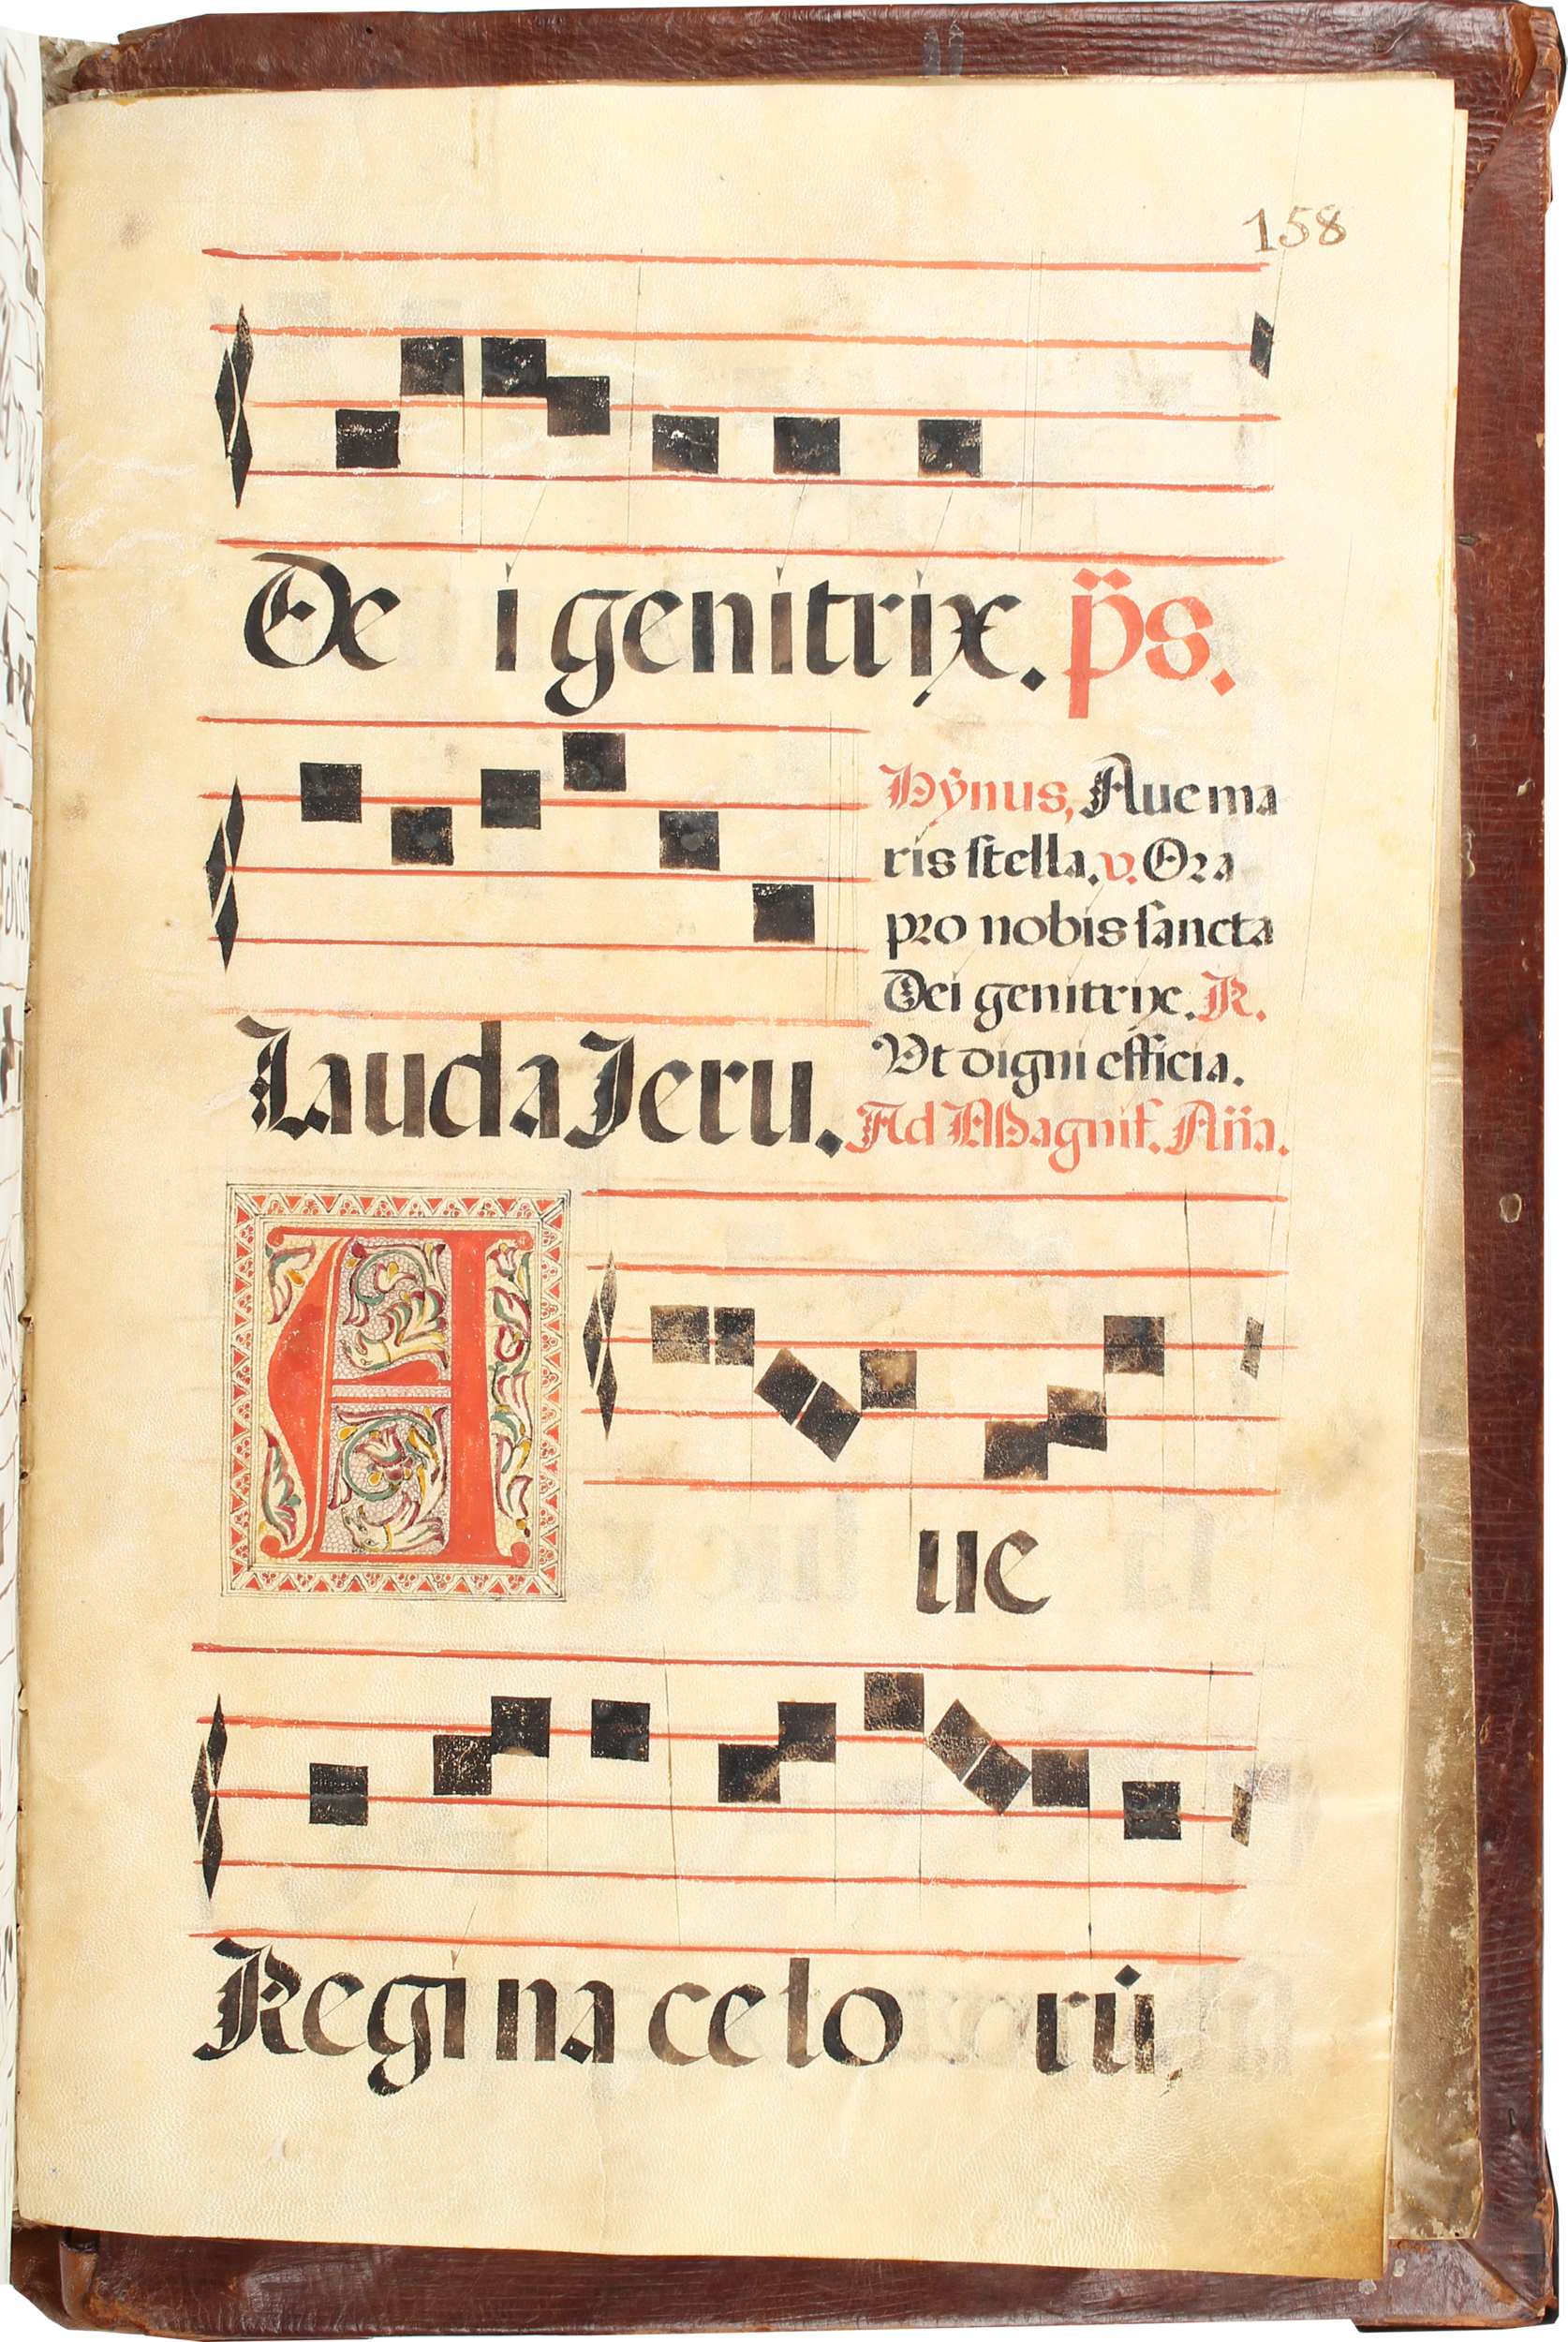 158
De i genitrix. p̈s.
Lauda Jeru.
Hÿnus, Aue ma
ris stella. v. Ora
pro nobis sancta
Dei genitrix. R.
Vt digni efficia.
Ad Magnif. Añа.
A ue
Regi na celo rū.